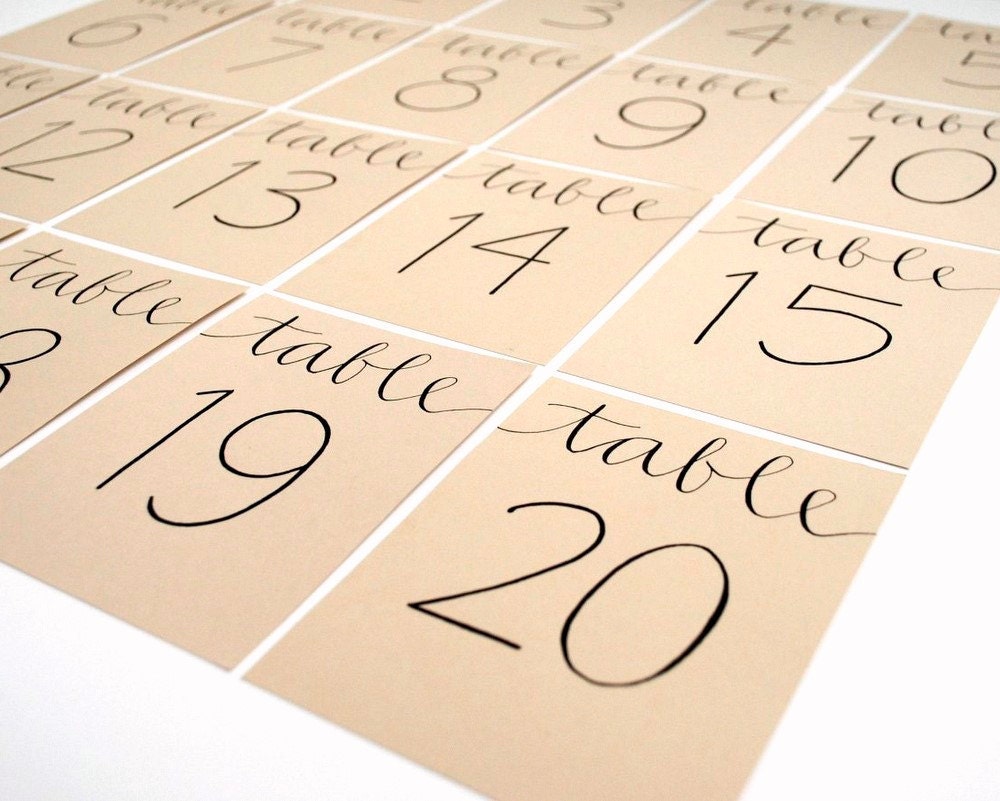 3
table
4
5
table
6
table
7
table
8
table
9
table
10
table
12
table
13
table
14
table
15
table
table
19
table
20